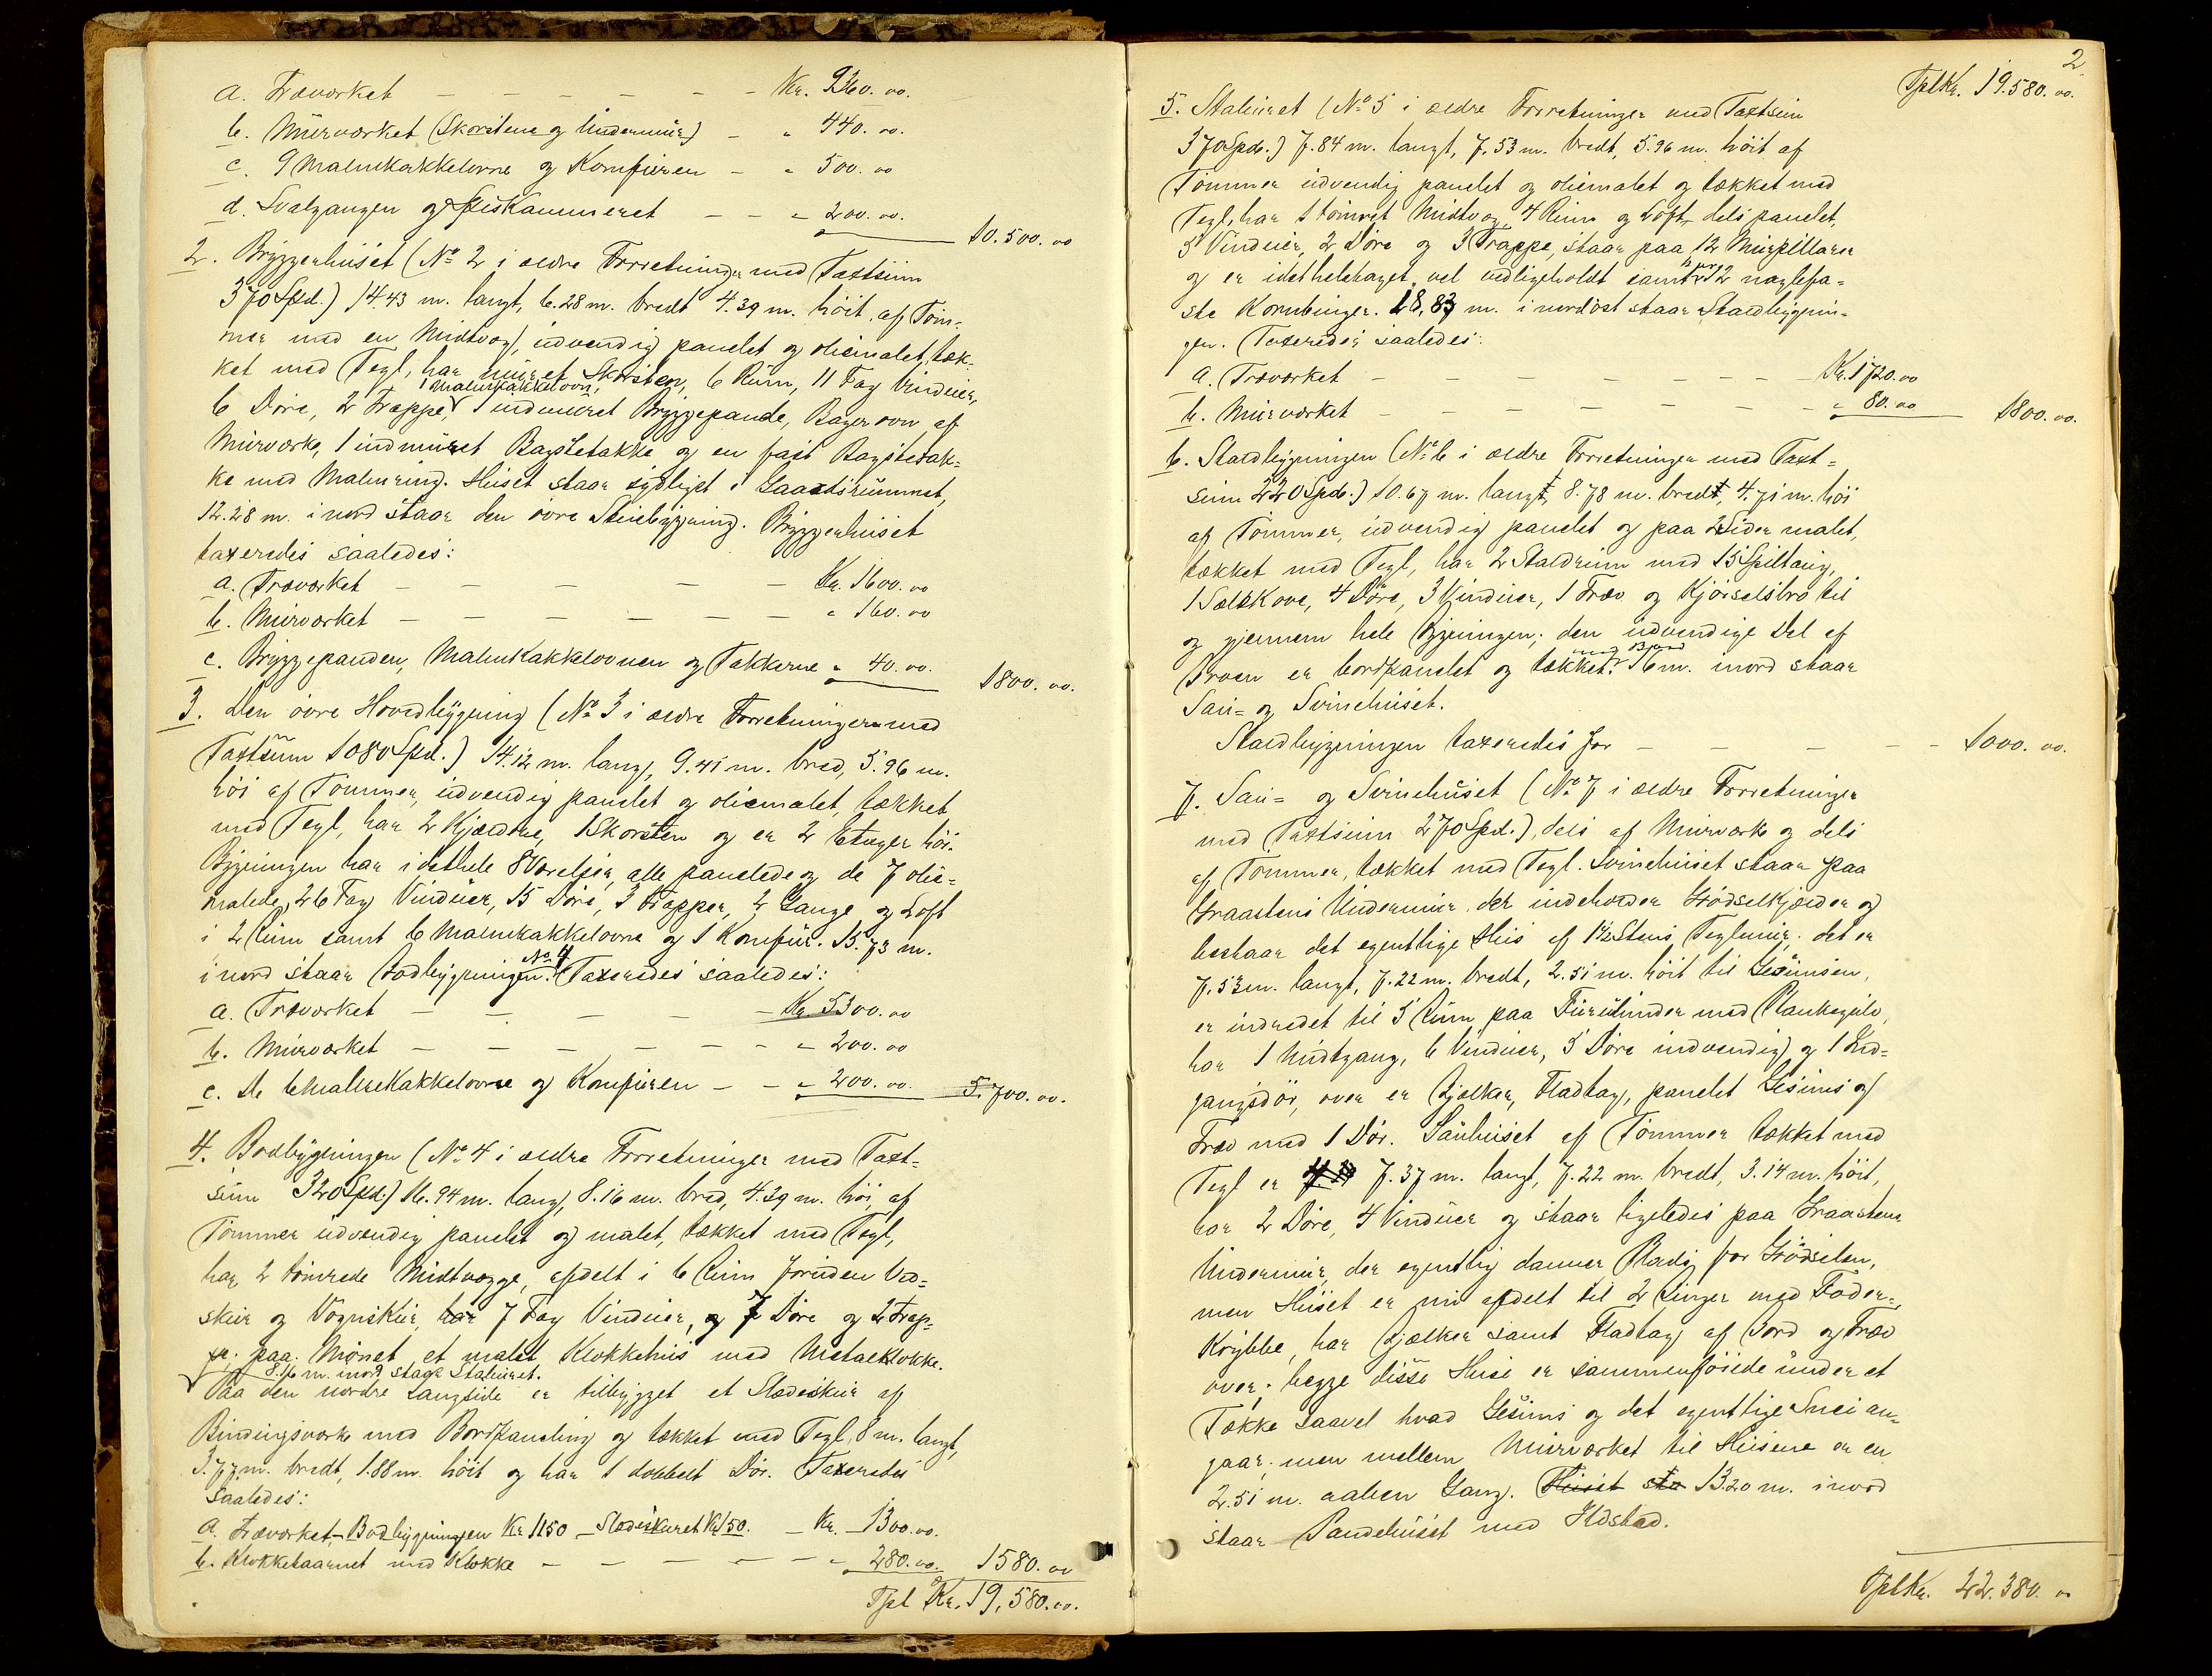 a. Træværket — — — — — — Kr. 9360.00.
b. Murværket (Skorstene og Undermur) — " 440.00.
c. 9 Malmkakkelovne og Komfuren — " 500.00
d. Svalgangen og Spiskammeret — — " 200.00. 10.500.00
2. Bryggerhuset (No 2 i ældre Forretninger med Taxtsum
370 Spd.) 14.43 m. langt, 6.28 m. bredt 4.39 m. höit, af Töm-
mer med en Midtvæg, udvendig panelet og oliemalet, tæk-
ket med Tegl, har muret Skorsten, 6 Rum, 11 Fag Vinduer,
6 Döre, 2 Trapper, 1 Malmkakkelovn, 1 indmuret Bryggepande, Bagerovn af
Murværk, 1 indmuret Bagstetakke og en fast Bagstetak-
ke med Malmring. Huset staar sydligst i Gaardsrummet,
12.28 m. i nord staar den övre Stuebygning. Bryggerhuset
taxeredes saaledes:
a. Træværket — — — — — Kr. 1600.00
b. Murværket — — — — — — " 160.00
c. Bryggepanden, Malmkakkelovnen og Takkerne " 40.00. 1800.00.
3. Den övre Hovedbygning (No 3 i ældre Forretninger med
Taxtsum 1080 Spd.) 14.12 m. lang, 9.41 m. bred, 5.96 m.
höi af Tömmer, udvendig panelet og oliemalet, tækket
med Tegl, har 2 Kjældre, 1 Skorsten og er 2 Etager höi.
Bygningen har i det hele 8 Værelser, alle panelede og de 7 olie-
malede, 26 Fag Vinduer, 15 Döre, 3 Trapper, 2 Gange og Loft
i 2 Rum samt 6 Malmkakkelovne og 1 Komfur. 15.73 m.
i nord staar Bodbygningen No. 4. Taxeredes saaledes:
a. Træværket — — — — — Kr. 5300.00
b. Murværket — — — — — — " 200.00
c. De 6 Malmkakkelovne og Komfuren — — " 200.00. 5.700.00.
4. Bodbygningen (No 4 i ældre Forretninger med Taxt-
sum 320 Spd.) 16.94 m. lang, 8.16 m. bred, 4.39 m. höi, af
Tömmer udvendig panelet og malet, tækket med Tegl,
har 2 tömrede Midtvægge, afdelt i 6 Rum foruden Ved-
skur og Vognskur, har 7 Fag Vinduer, og 7 Döre og 2 Trap-
pe; paa Mönet et malet Klokkehus med Metalklokke.
8.16 m. i nord staar Staburet.
Paa den nordre Langside er tilbygget et Slædeskur af
Bindingsværk med Bordpaneling og tækket med Tegl, 8 m. langt,
3.77 m. bredt, 1.88 m. höit og har 1 dobbelt Dör. Taxeredes
saaledes:
a. Træværket, Bodbygningen Kr 1150 — Slædeskuret Kr 150. — Kr. 1300.00.
b. Klokketaarnet med Klokke — — — — — " 280.00. 1580.00
Tpl Kr. 19,580.00.
2
TplKr. 19.580.00.
5. Staburet (No 5 i ældre Forretninger med Taxtsum
370 Spd.) 7.84 m. langt, 7.53 m. bredt, 5.96 m. höit af
Tömmer udvendig panelet og oliemalet og tækket med
Tegl, har 1 tömret Midtvæg, 4 Rum og Loft, dels panelet,
5 Vinduer, 2 Döre og 3 Trappe, staar paa 12 Murpillarer
og er idetheletaget vel vedligeholdt samt 12 naglefa-
ste Kornbinger. 18,83 m. i nordöst staar Staldbygnin-
gen. Taxeredes saaledes:
a. Træværket — — — — — — Kr. 1720.00
b. Murværket — — — — — — " 80.00 1800.00.
6. Staldbygningen (No 6 i ældre Forretninger med Taxt-
sum 220 Spd.) 10.67 m. lang, 8.78 m. bred, 4.71 m. höi
af Tömmer, udvendig panelet og paa 2 Sider malet,
tækket med Tegl, har 2 Staldrum med 15 Spiltaug,
1 Sælekove, 4 Döre, 3 Vinduer, 1 Træv og Kjörselsbro til
og gjennem hele Bygningen; den udvendige Del af
Broen er bordpanelet og tækket med Bord. 16 m. i nord staar
Sau- og Svinehuset.
Staldbygningen taxeredes for — — — — — 1000.00.
7. Sau- og Svinehuset (No 7 i ældre Forretninger
med Taxtsum 270 Spd.), dels af Murværk og dels
af Tömmer, tækket med Tegl. Svinehuset staar paa
Graastens Undermur, der indeholder Gjödselkjælder og
bestaar det egentlige Hus af 1 1/2 Stens Teglmur; det er
7.53 m. langt, 7.22 m. bredt, 2.51 m. höit til Gesimsen,
er indredet til 5 Rum paa Furulunder med Plankegulv,
har 1 Midtgang, 6 Vinduer, 5 Döre indvendig og 1 Ind-
gangsdör, over er Bjælker, Fladtag, panelet Gesims og
Træv med 1 Dör. Sauhuset af Tömmer tækket med
Tegl er 7.37 m. langt, 7.22 m. bredt, 3.14 m. höit,
har 2 Döre, 4 Vinduer og staar ligeledes paa Graastens
Undermur, der egentlig danner Plads for Gjödselen,
men Huset er nu afdelt til 2 Binger med Foder-
krybbe, har Bjælker samt Fladtag af Bord og Træv
over; begge disse Huse er sammenföiede under et
Tække saavel hvad Gesims og det egentlige an-
gaar; men mellem Murværket til Husene er en
2.51 m. aaben Gang. Huset sta 13.20 m. i nord
staar Pandehuset med Ildsted.
TplKr. 22.380.00